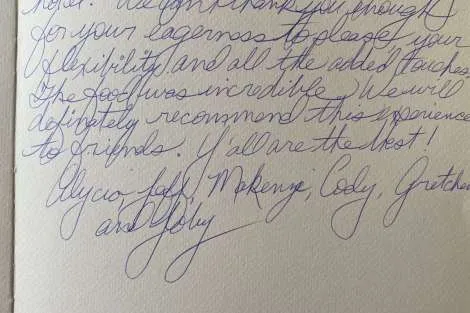 We can't thank you enough
for your eagerness to please, your
flexibility and all the added touches.
The food was incredible. We will
definitely recommend this experience
to friends. Y'all are the best!
Alycia, Jeff, Makenzi, Cody, Gretchen
and Toby